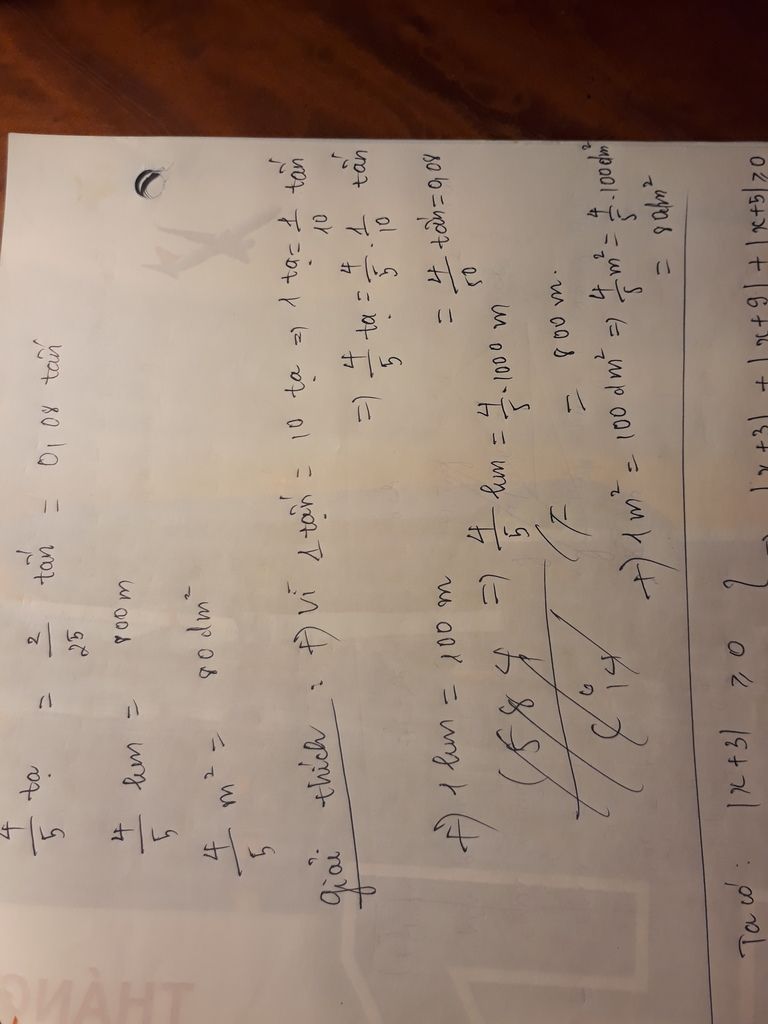 4/5 tạ = 2/25 tấn = 0,08 tấn
4/5 km = 800m
4/5 m² = 80 dm²
giải thích : +) Vì 1 tấn = 10 tạ => 1 tạ = 1/10 tấn
=> 4/5 tạ = 4/5 . 1/10 tấn
= 4/50 tấn = 0,08
+) 1 km = 100 m => 4/5 km = 4/5 . 1000 m
= 800 m.
+) 1m² = 100 dm² => 4/5 m² = 4/5 . 100dm²
= 80dm²
Ta có : |x+3| ≥ 0
|x+3| + |x+9| + |x+5| ≥ 0
THÁNG